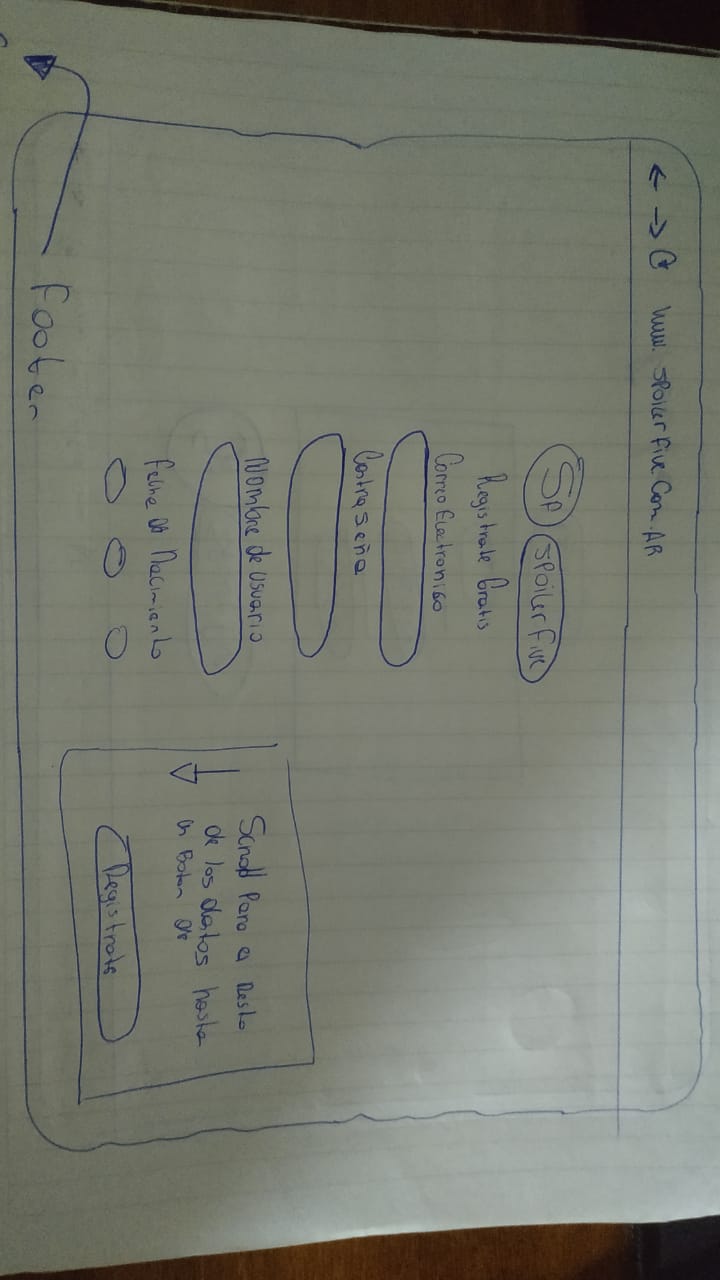 www. spoilerfive.com.AR
SP
spoiler five
Registrate Gratis
Correo Electronico
Contraseña
Nombre de Usuario
Fecha de Nacimiento
Scroll Para el Resto
de los datos hasta
un Boton de
Registrate
Footer